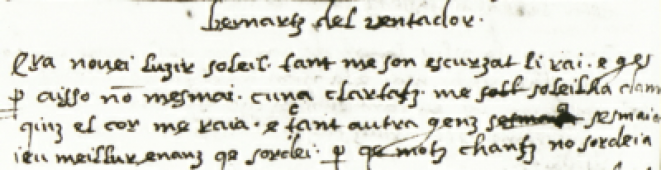 bernartz del ventador.
Era nouei luzir soleil. tant me son escurzat li rai. e ges
p aisso nō mesmai. cuna clartatz. me soll soleilla dam
quinz el cor me raia. e c̄ant autra genz sesmaia sesmaia
ieu meillur enanz qe sordei. p qe motz chantz no sordeia